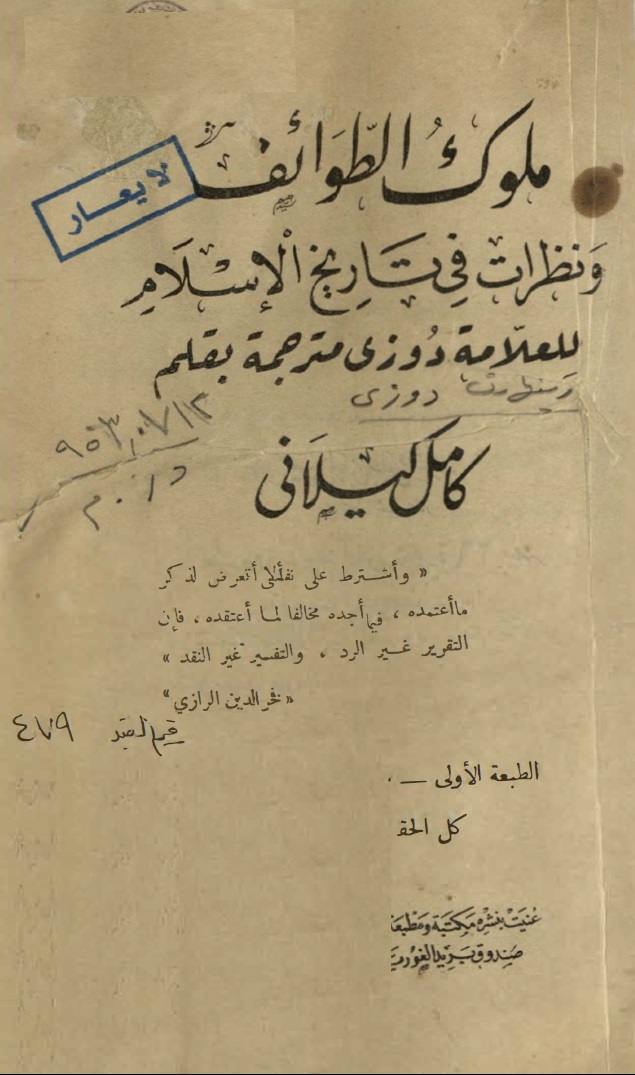 ملوك الطوائف
لا يعار
ونظرات في تاريخ الإسلام
للعلامة دوزى مترجمة بقلم
رينهرت دوزى
٩٥٣,٠٧١٢
د ١٠ م
كامل كيلانى
« وأشترط على نفسي أتعرض لذكر
ماأعتمده ، فيما أجده مخالفا لما أعتقده ، فإن
التقرير غير الرد ، والتفسير غير النقد »
« فخر الدين الرازي »
٤٧٩
الطبعة الأولى —
كل الحق
عنيت بنشره مكتبة ومطبعة
صندوق بريد الغورية